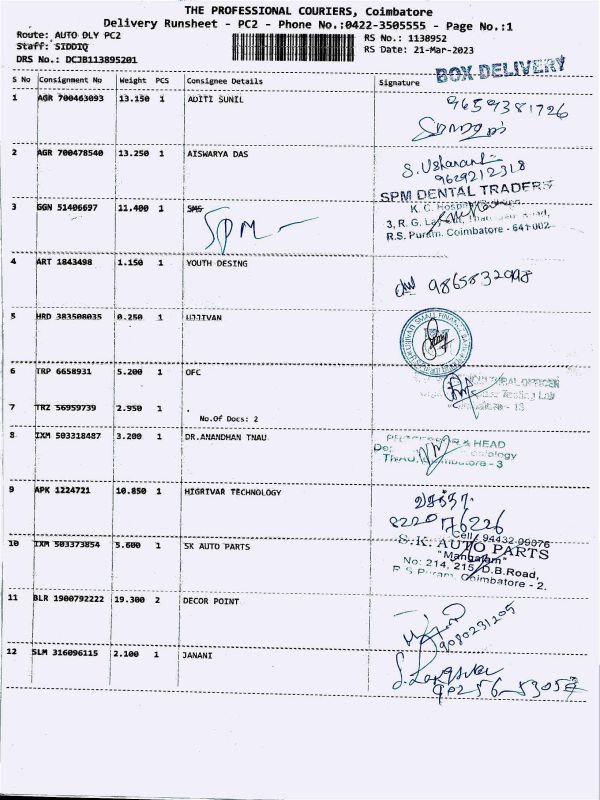 THE PROFESSIONAL COURIERS, Coimbatore
Delivery Runsheet - PC2 - Phone No.:0422-3505555 - Page No.:1
Route: AUTO DLY PC2
RS No.: 1138952
Staff: SIDDIQ
RS Date: 21-Mar-2023
DRS No.: DCJB113895201
BOX DELIVERY
S No Consignment No Weight PCS Consignee Details Signature
1 AGR 700463093 13.150 1 ADITI SUNIL 9659381726
2 AGR 700478540 13.250 1 AISWARYA DAS
9629212318
SPM DENTAL TRADERS
3 GGN 51406697 11.400 1 SMS
SPM
R.S. Puram, Coimbatore - 641 002
4 ART 1843498 1.150 1 YOUTH DESING 9865832998
5 HRD 383508035 0.250 1 UJJIVAN
6 TRP 6658931 5.200 1 OFC
7 TRZ 56959739 2.950 1 .
No.Of Docs: 2
8 IXM 503318487 3.200 1 DR.ANANDHAN TNAU
& HEAD
9 APK 1224721 10.850 1 HIGRIVAR TECHNOLOGY
8220 76226
Cell: 94432-99076
10 IXM 503373854 5.600 1 SK AUTO PARTS
S.K. AUTO PARTS
"Mangalam"
No: 214, 215, D.B.Road,
R S Puram, Coimbatore - 2.
11 BLR 1900792222 19.300 2 DECOR POINT
9080231205
12 SLM 316096115 2.100 1 JANANI